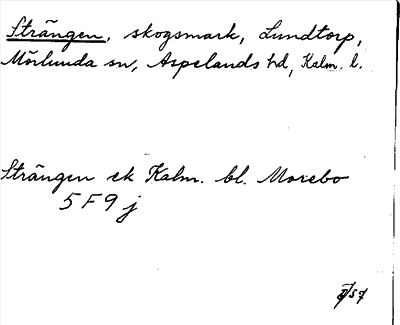 Strängen, skogsmark, Lundtorp,
Mörlunda sn, Aspelands hd, Kalm. l.
Strängen ek Kalm. bl. Morebo
5 F 9 j
57